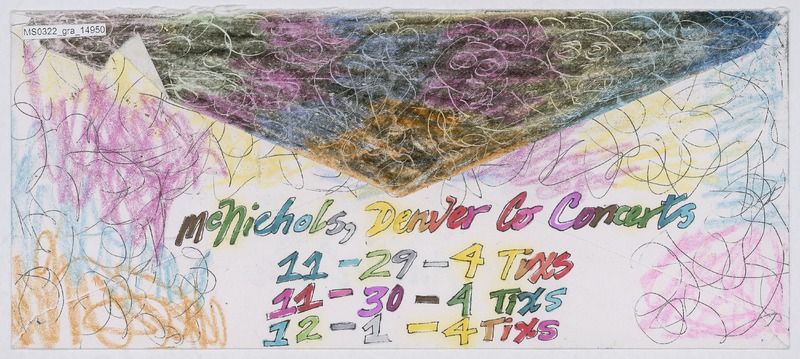 MS0322_gra_14950
McNichols, Denver Co Concerts
11-29-4 Tixs
11-30-4 Tixs
12-1-4 Tixs